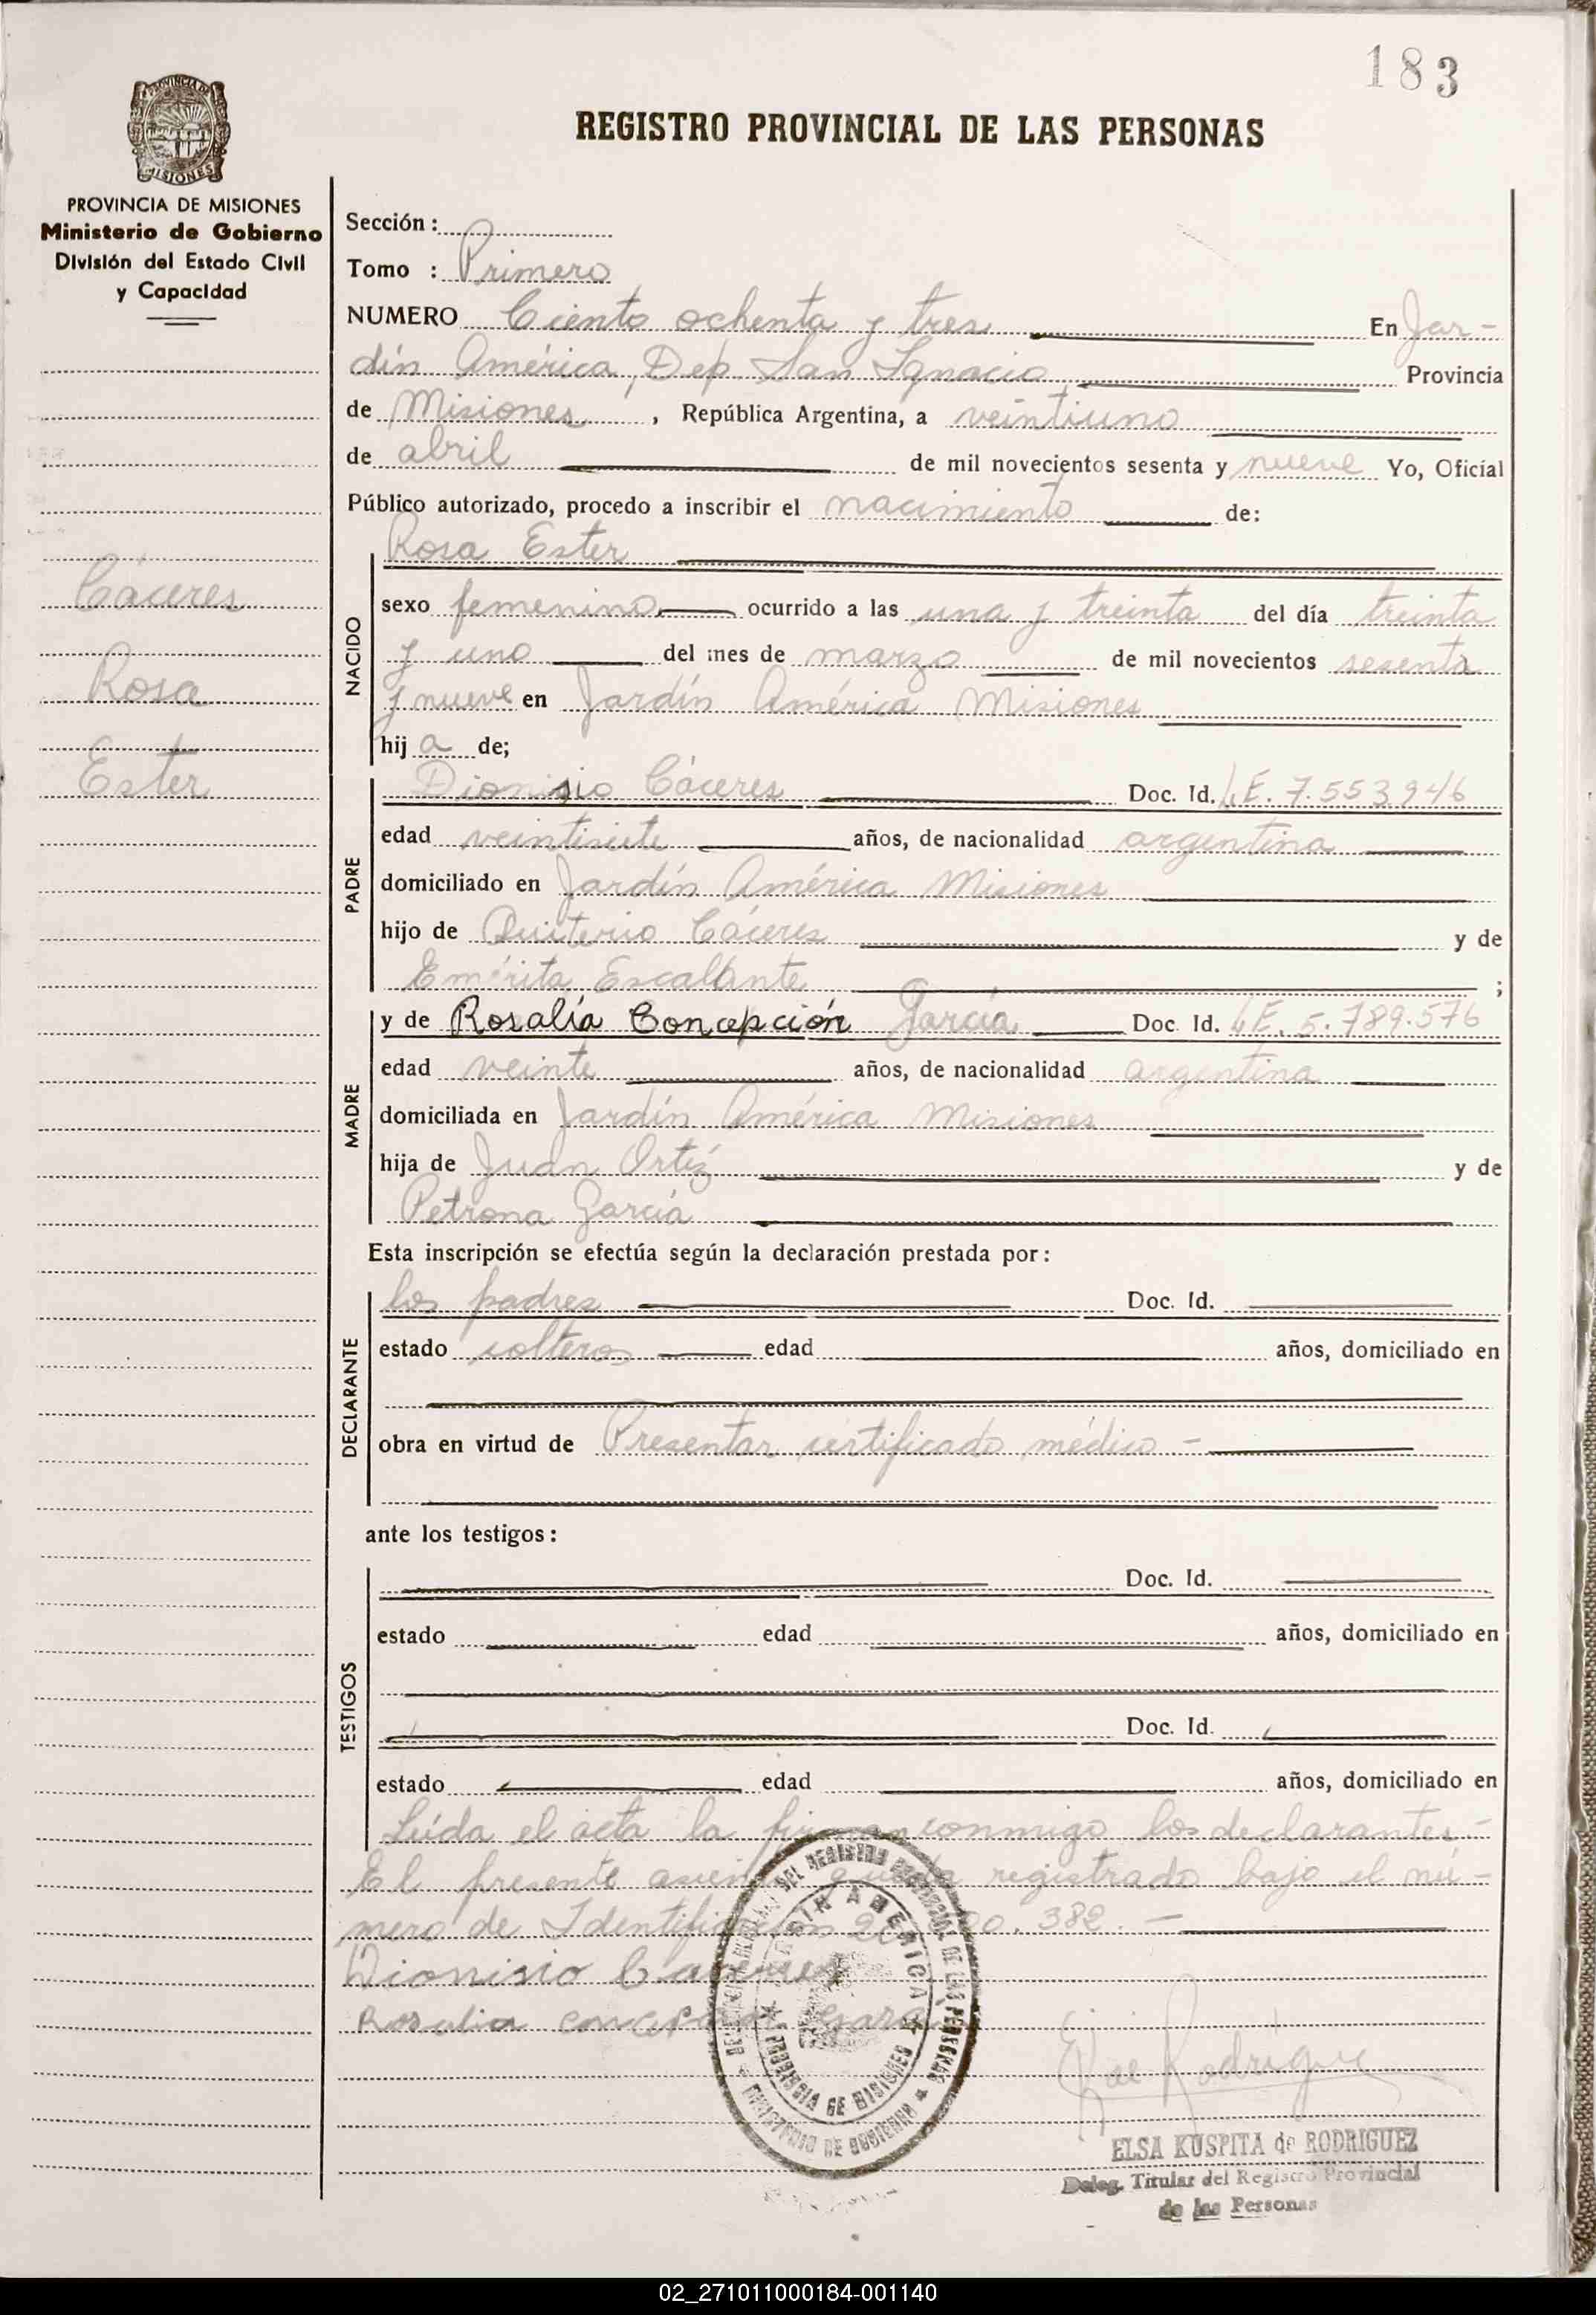 183
REGISTRO PROVINCIAL DE LAS PERSONAS
PROVINCIA DE MISIONES
Ministerio de Gobierno
División del Estado Civil
y Capacidad
Cáceres
Rosa
Ester
Sección :
Tomo : Primero
NUMERO Ciento ochenta y tres En Jar-
dín América, Dep. San Ignacio Provincia
de Misiones, República Argentina, a veintiuno
de abril de mil novecientos sesenta y nueve Yo, Oficial
Público autorizado, procedo a inscribir el nacimiento de:
Rosa Ester
NACIDO
sexo femenino ocurrido a las una y treinta del día treinta
y uno del mes de marzo de mil novecientos sesenta
y nueve en Jardín América Misiones
hija de;
PADRE
Dionisio Cáceres Doc. Id. L.E. 7.553.946
edad veintisiete años, de nacionalidad argentina
domiciliado en Jardín América Misiones
hijo de Quiterio Cáceres y de
Emérita Escalante ;
MADRE
y de Rosalía Concepción García Doc. Id. L.E. 5.789.576
edad veinte años, de nacionalidad argentina
domiciliada en Jardín América Misiones
hija de Juan Ortíz y de
Petrona García
Esta inscripción se efectúa según la declaración prestada por:
DECLARANTE
los padres Doc. Id.
estado solteros edad años, domiciliado en
obra en virtud de Presentar certificado médico -
ante los testigos:
TESTIGOS
Doc. Id.
estado edad años, domiciliado en
Doc. Id.
estado edad años, domiciliado en
Leída el acta la firman conmigo los declarantes-
El presente asiento queda registrado bajo el nú-
mero de Identificación 382.-
Dionisio Caceres
Rosalia concepcion Garcia
JARDIN AMERICA
PROVINCIA DE MISIONES
MINISTERIO DE GOBIERNO
DEL REGISTRO PROVINCIAL DE LAS PERSONAS
Rodriguez
ELSA KUSPITA de RODRIGUEZ
Deleg. Titular del Registro Provincial
de las Personas
02_271011000184-001140